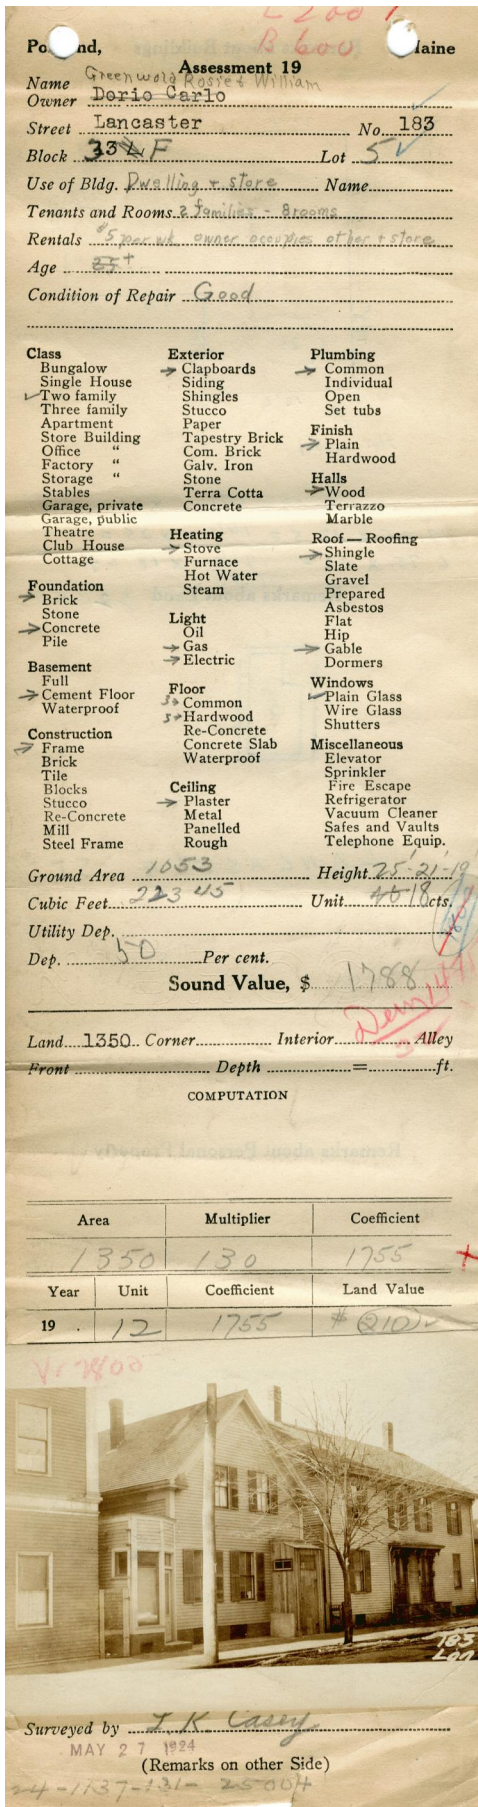 L 200
B 600
Po nd, Maine
Assessment 19
Greenwold Rosie & William
Name
Owner Dorio Carlo
Street Lancaster No. 183
Block 33 F Lot 5
Use of Bldg. Dwelling + store Name
Tenants and Rooms 2 families - 8 rooms
Rentals $5 per wk. owner occupies other + store
Age 25+
Condition of Repair Good
Class
Bungalow
Single House
Two family
Three family
Apartment
Store Building
Office "
Factory "
Storage "
Stables
Garage, private
Garage, public
Theatre
Club House
Cottage
Foundation
Brick
Stone
Concrete
Pile
Basement
Full
Cement Floor
Waterproof
Construction
Frame
Brick
Tile
Blocks
Stucco
Re-Concrete
Mill
Steel Frame
Exterior
Clapboards
Siding
Shingles
Stucco
Paper
Tapestry Brick
Com. Brick
Galv. Iron
Stone
Terra Cotta
Concrete
Heating
Stove
Furnace
Hot Water
Steam
Light
Oil
Gas
Electric
Floor
Common
Hardwood
Re-Concrete
Concrete Slab
Waterproof
Ceiling
Plaster
Metal
Panelled
Rough
Plumbing
Common
Individual
Open
Set tubs
Finish
Plain
Hardwood
Halls
Wood
Terrazzo
Marble
Roof — Roofing
Shingle
Slate
Gravel
Prepared
Asbestos
Flat
Hip
Gable
Dormers
Windows
Plain Glass
Wire Glass
Shutters
Miscellaneous
Elevator
Sprinkler
Fire Escape
Refrigerator
Vacuum Cleaner
Safes and Vaults
Telephone Equip.
Ground Area 1053 Height 25'-21'-19
Cubic Feet 22345 Unit 18 cts.
Utility Dep.
Dep. 50 Per cent.
Sound Value, $ 1788
Land 1350 Corner Interior Alley
Front Depth = ft.
COMPUTATION
Area Multiplier Coefficient
1350 130 1755
Year Unit Coefficient Land Value
19 . 12 1755 $ 210
183
Lan
Surveyed by I. K. Casey
MAY 27 1924
(Remarks on other Side)
24-1137-131-